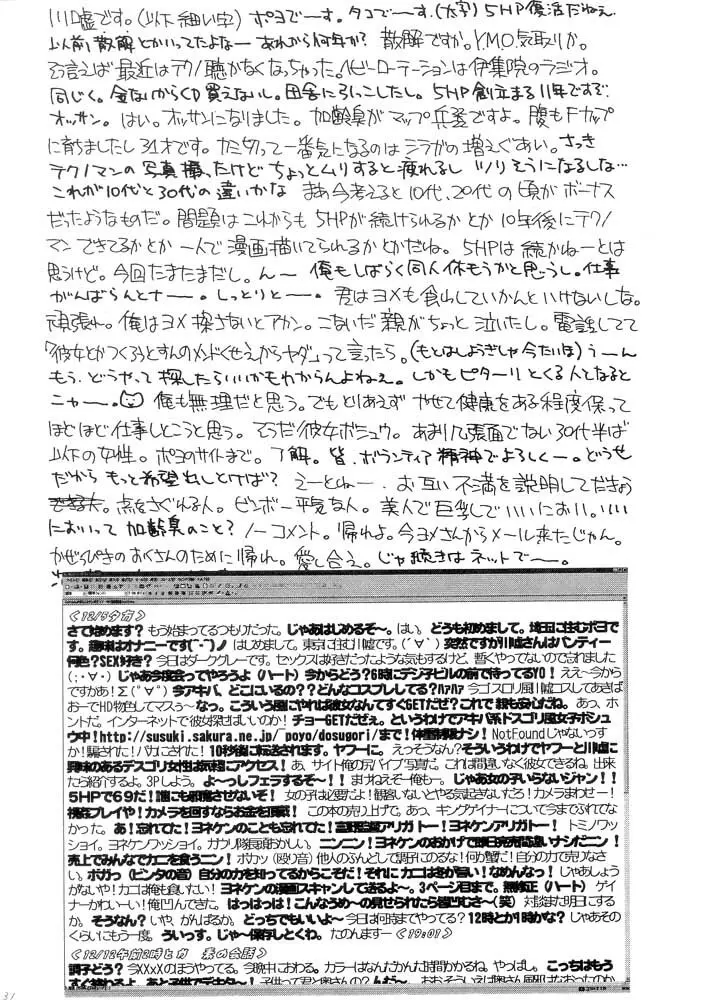 川嘘です。(以下細い字) ポヨでーす。タコでーす。(太字) 5HP復活だねえ
以前、散解とかいってたよなー あれから何年か? 散解ですか。YMO気取りか。
そう言えば最近はテクノ聴かなくなっちゃった。ヘビーローテーションは伊集院のラジオ。
同じく。金ないからCD買えないし。田舎にひっこしたし。5HP創立まる11年ですぞ
オッサン。はい。オッサンになりました。加齢臭がマップ兵器ですよ。腹もFカップ
に育ちましたし31才です。カミ切って一番気になるのはシラガの増えぐあい。さっき
テクノマンの写真撮ったけどちょっとムリすると疲れるし ツりそうになるしな…
これが10代と30代の違いかな まあ今考えると10代、20代の頃がボーナス
だったようなものだ。問題はこれからも5HPが続けられるかとか10年後にテクノ
マンできてるかとか一人で漫画描いてられるかとかだね。5HPは続かねーとは
思うけど。今回たまたまだし。んー 俺もしばらく同人休もうかと思うし。仕事
がんばらんとナー。しっとりとー。君はヨメも食わしていかんといけないしな。
頑張れ。俺はヨメ探さないとアカン。こないだ親がちょっと泣いたし。電話してて
「彼女とかつくろうとすんのメンドくせえからヤダ」って言ったら。(もとはしょうぎしゃ今たいほ) うーん
もう、どうやって探したらいいかもわからんよねえ。しかもピターリとくる人となると
ニャー。俺も無理だと思う。でもとりあえず やせて健康をある程度保って
ほどほど仕事しとこうと思う。そうだ彼女ボシュウ。あまり几張面でない30代半ば
以下の女性。ポヨのサイトまで。了解。皆、ボランティア精神でよろしくー。どうせ
だからもっと希望出しとけば? えーとねー、お互い不満を説明してだきょう
点をさぐれる人。ビンボー平気な人。美人で巨乳でいいにおい。いい
においって加齢臭のこと? ノーコメント。帰れよ。今ヨメさんからメール来たじゃん。
かぜっぴきのおくさんのために帰れ。愛し合え。じゃ続きはネットでー。
<12/5夕方>
さて始めます? もう始まってるつもりだった。じゃあはじめるぞ〜。はい。どうも初めまして。埼玉に住むポヨで
す。趣味はオナニーです(^-^)ノ はじめまして。東京に住む川嘘です。(´∀`) 突然ですが川嘘さんはパンティー
何色?SEX好き? 今日はダークグレーです。セックスは好きだったような気もするけど、暫くやってないので忘れました
(;・∀・) じゃあ今度会ってやろうよ(ハート) 今からどう?6時にデジ子ビルの前で待ってるYO! ええ〜今から
ですかあ!Σ(゚∀゚) 今アキバ、どこにいるの??どんなコスプレしてる?ハァハァ 今ゴスロリ風川嘘コスしてあきば
お〜でHD物色してマスぅ〜 なっ。こういう風にやれば彼女なんてすぐGETだぜ?これで親も安心だね。あっ、ホ
ントだ。インターネットで彼女探せばいいのか! チョーGETだぜぇ。というわけでアキバ系ドスゴリ風女子ボシュ
ウ中!http://susuki.sakura.ne.jp/~poyo/dosugori/まで!体重制限ナシ! NotFoundじゃないっす
か!騙された!バカにされた! 10秒後に転送されます。ヤフーに。えっそうなん? そういうわけでヤフーと川嘘に
興味のあるデスゴリ女性は気軽にアクセス! あ、サイト俺の尻バイブ写真だ。これは間違いなく彼女できるね。出来
たら紹介するよ。3Pしよう。よ〜っしフェラするぞ〜!! まけねえぞ〜俺も〜。じゃあ女の子いらないジャン!!
5HPで69だ!誰にも邪魔させないぞ! 女の子は必要だよ!観客いないとやる気起きないだろ!カメラまわせー!
視姦プレイや!カメラを回すならお金を頂戴! この本の売り上げで。あっ、キングゲイナーについて今まで触れてな
かった。あ!忘れてた!ヨネケンのことも忘れてた!富野監督アリガトー!ヨネケンアリガトー! トミノワッ
ショイ。ヨネケンワッショイ。カナリ隊長恥ずかしい。ニンニン!ヨネケンのおかげで即日完売間違いナシだニン!
売上でみんなでカニを食うニン! ボカッ(殴り音) 他人のふんどしで調子にのるな!何が蟹だ!自分の力で売りなさ
い。ボガっ(ビンタの音) 自分の力を知ってるからこそだ!それにカニは冬が旨い!なめんなっ! じゃあしょう
がないや!カニは俺も食いたい! ヨネケンの漫画スキャンして送るよ〜。3ページ目まで。無修正(ハート) ゲイ
ナーかわいーい!俺凹んできた。はっはっは!こんなうめ〜の見せられたら皆凹むさ〜(笑) 対談また明日にする
か。そうなん? いや、がんばるか。どっちでもいいよ〜 今日は何時までやってる? 12時とか1時かな? じゃあその
くらいにもう一度。ういっす。じゃ〜保存しとくわ。たのんますー <19:01>
<12/12午前2時とか 素の会話>
調子どう? 今XXxXのほうやってる。今晩中におわる。カラーはなんだかんだ時間かかるね。やっぱし。こっちはもう
31